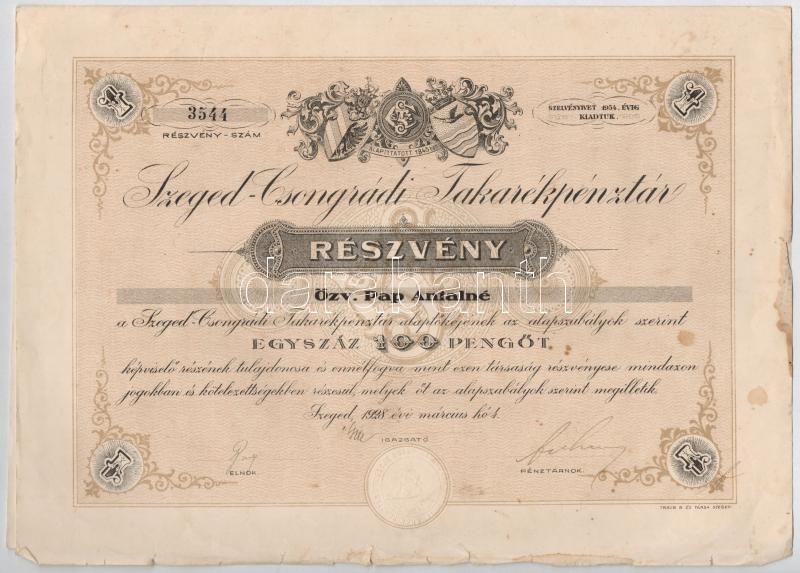 3544
RÉSZVÉNY-SZÁM
SZELVÉNYIVET 1954. ÉVIG
KIADTUK.
ALAPÍTTATOTT 1845-BEN
Szeged-Csongrádi Takarékpénztár
RÉSZVÉNY
darabanth
Özv. Pap Antalné
a Szeged-Csongrádi Takarékpénztár alaptőkéjének az alapszabályok szerint
EGYSZÁZ 100 PENGŐT
képviselő részének tulajdonosa és ennélfogva mint ezen társaság részvényese mindazon
jogokban és kötelezettségekben részesül, melyek őt az alapszabályok szerint megilletik.
Szeged, 1928 évi március hó 1.
IGAZGATÓ
ELNÖK.
PÉNZTÁRNOK.
TRAUB B. ÉS TÁRSA SZEGED